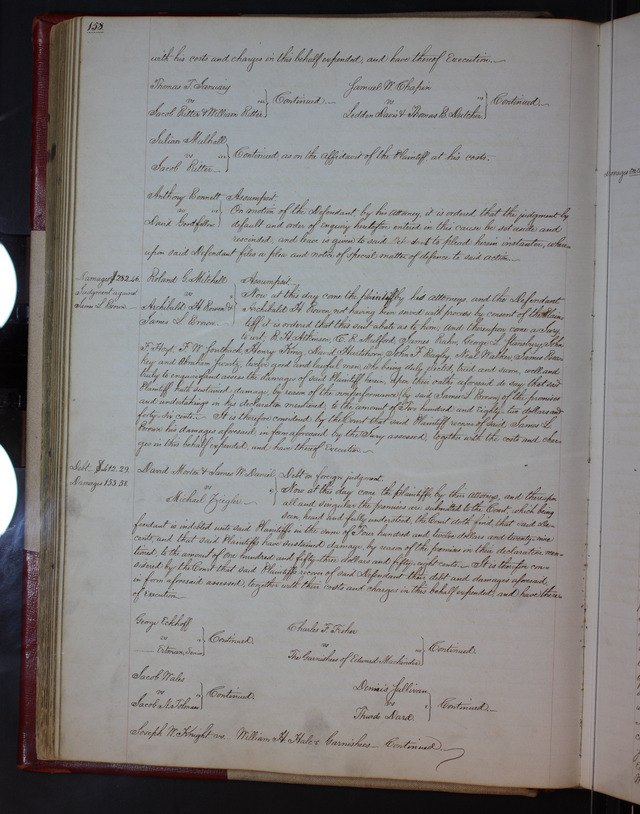 158
with his costs and charges in this behalf expended, and have thereof Execution.
Thomas T. January
vs
Jacob Ritter & William Ritter
Continued.
Samuel W. Chapin
vs
Davis & Thomas B. Dutcher
Continued.
Julian Mulhall
vs
Jacob Ritter
Continued, as on the affidavit of the Plaintiff, at his costs.
Anthony Bennett
vs
David Goodfellow
Assumpsit.
On motion of the Defendant, by his Attorney, it is ordered that the judgment by
default and order of enquiry heretofore entered in this cause be set aside and
rescinded, and leave is given to said Defendant to plead herein instanter, where
upon said Defendant files a plea and notice of special matter of defence to said action.
Damages $282.46
Judgment against
James L. Brown
Roland G. Mitchell
vs
Archibald H. Rowan &
James L. Brown
Assumpsit.
Now at this day come the plaintiff by his attorneys, and the Defendant
Archibald H. Rowan, not having been served with process by consent of the Plain
tiff it is ordered that this suit abate as to him, and thereupon come a Jury,
to wit, R. H. Atkinson, C. R. Mulford, James Kuhn, George L. John
F. Lloyd, F. W. Southack, Henry King, David Hartshorn, John F. Neal Walton, James
and Abraham twelve good and lawful men, who being duly elected, tried and sworn, well and
truly to enquire of and assess the damages of said Plaintiff herein, upon their oaths aforesaid do say that said
Plaintiff hath sustained damage by reason of the nonperformance (by said James L. Brown) of the promises
and undertakings in his declaration mentioned, to the amount of Two hundred and Eighty two dollars and
forty six cents. It is therefore considered by the Court that said Plaintiff recover of said James L.
Brown his damages aforesaid, in form aforesaid by the Jury assessed, together with the costs and char
ges in this behalf expended, and have thereof Execution.
Debt. $412.29.
Damages 153.58.
David Morton & James W. Daniel
vs
Michael Zeigler
Debt on foreign judgment.
Now at this day come the plaintiffs by their attorney, and thereupon
all and singular the premises are submitted to the Court, which being
seen, heard and fully understood, the Court doth find that said De
fendant is indebted unto said Plaintiffs in the sum of Four hundred and twelve dollars and twenty nine
cents, and that said Plaintiffs have sustained damage, by reason of the premises in their declaration men
tioned, to the amount of one hundred and fifty three dollars and fifty eight cents. It is therefore con
sidered by the Court that said Plaintiffs recover of said Defendant their debt and damages aforesaid,
in form aforesaid assessed, together with their costs and charges in this behalf expended, and have there
of Execution.
George Eckhoff
vs
Ertman, Senior
Continued.
Charles F. Fisher
vs
The Garnishees of Edward
Continued.
Jacob Wales
vs
Jacob N. Tolman
Continued.
Dennis Sullivan
vs
Dard.
Continued.
Joseph W. Knight vs. William H. Hale & Garnishees. Continued.